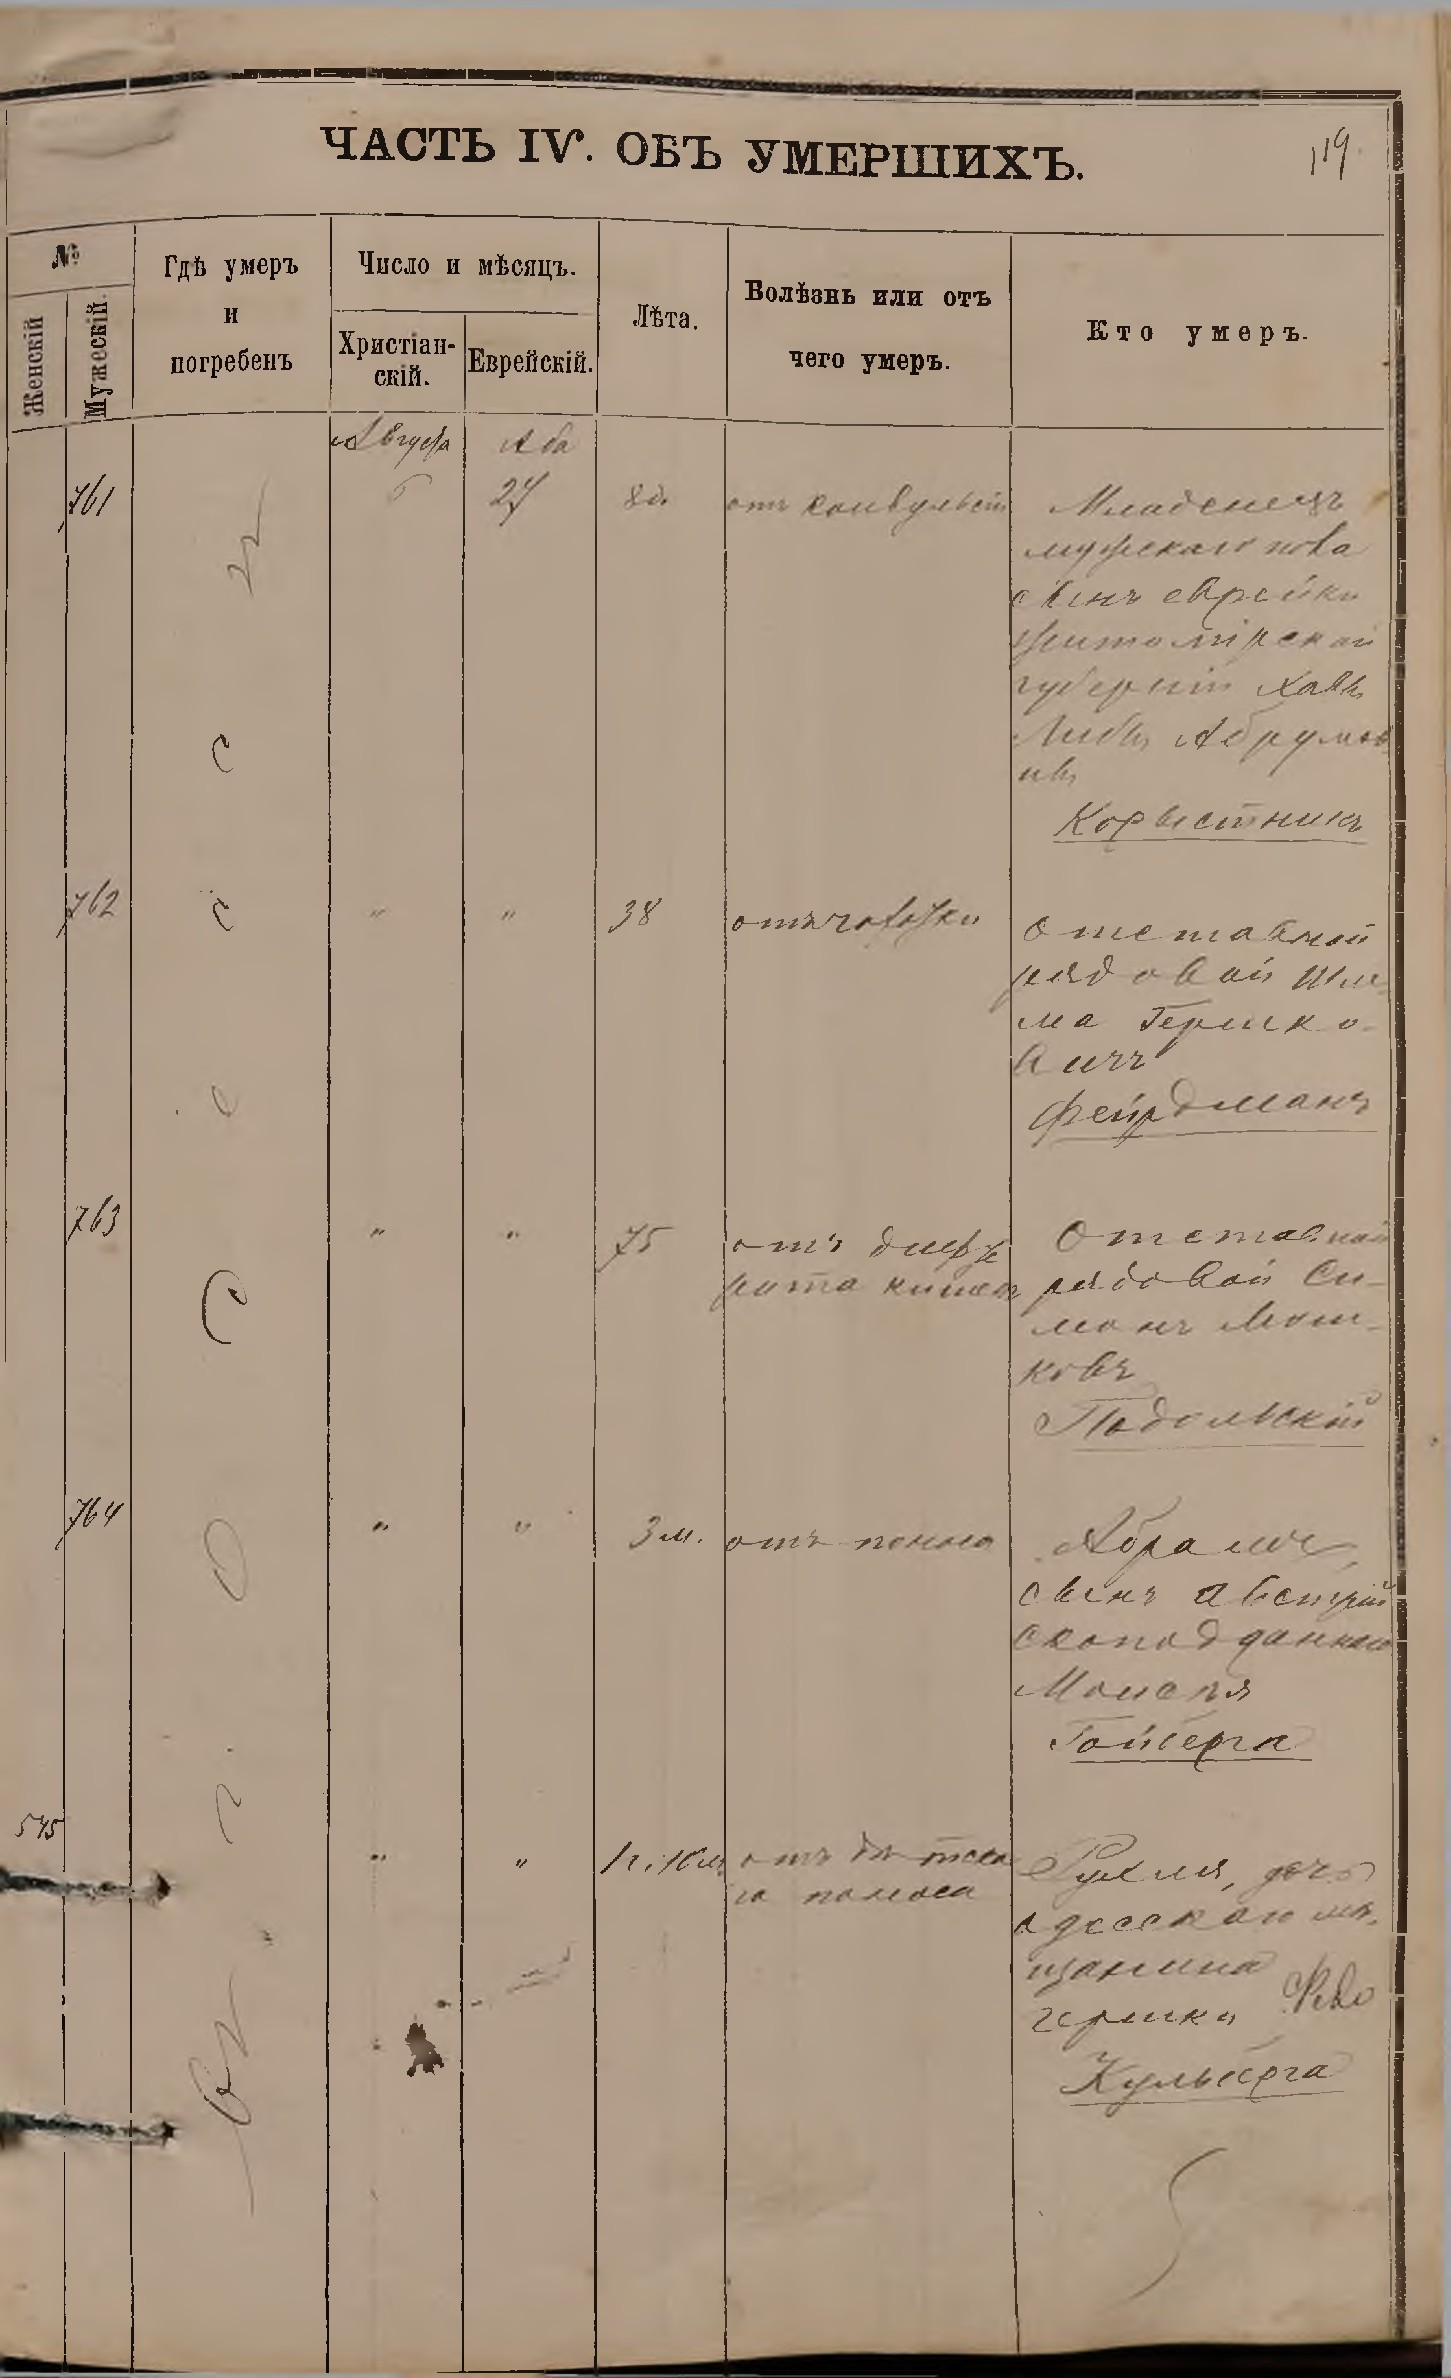 ЧАСТЬ IV. ОБЪ УМЕРШИХЪ.
119
№
Женскій
Мужескій.
Гдѣ умеръ
и
погребенъ
Число и мѣсяцъ.
Христіан-
скій.
Еврейскій.
Лѣта.
Болѣзнь или отъ
чего умеръ.
Кто умеръ.
Августа
Аба
761
6
27
8 д.
отъ конвульсій
Младенецъ
мужескаго пола
сынъ еврейки
Житомірской
губерніи Хаи
Абрумов
ны
Корыстникъ
762
"
"
38
отъ чахотки
Отставной
рядовой Шле-
ма Гершко-
вичъ
Фейрдманъ
763
"
"
75
отъ
кишекъ
Отставной
рядовой Си-
монъ Мош-
ковъ
Подольскій
764
"
"
3 м.
отъ поноса
Абрамъ,
сынъ австрій
скоподданнаго
Моисея
Гойберга
545
"
"
отъ дѣтска
го поноса
Рухля, дочь
одесскаго мѣ-
щанина
Гершки
Кульберга
въ г. Одессѣ